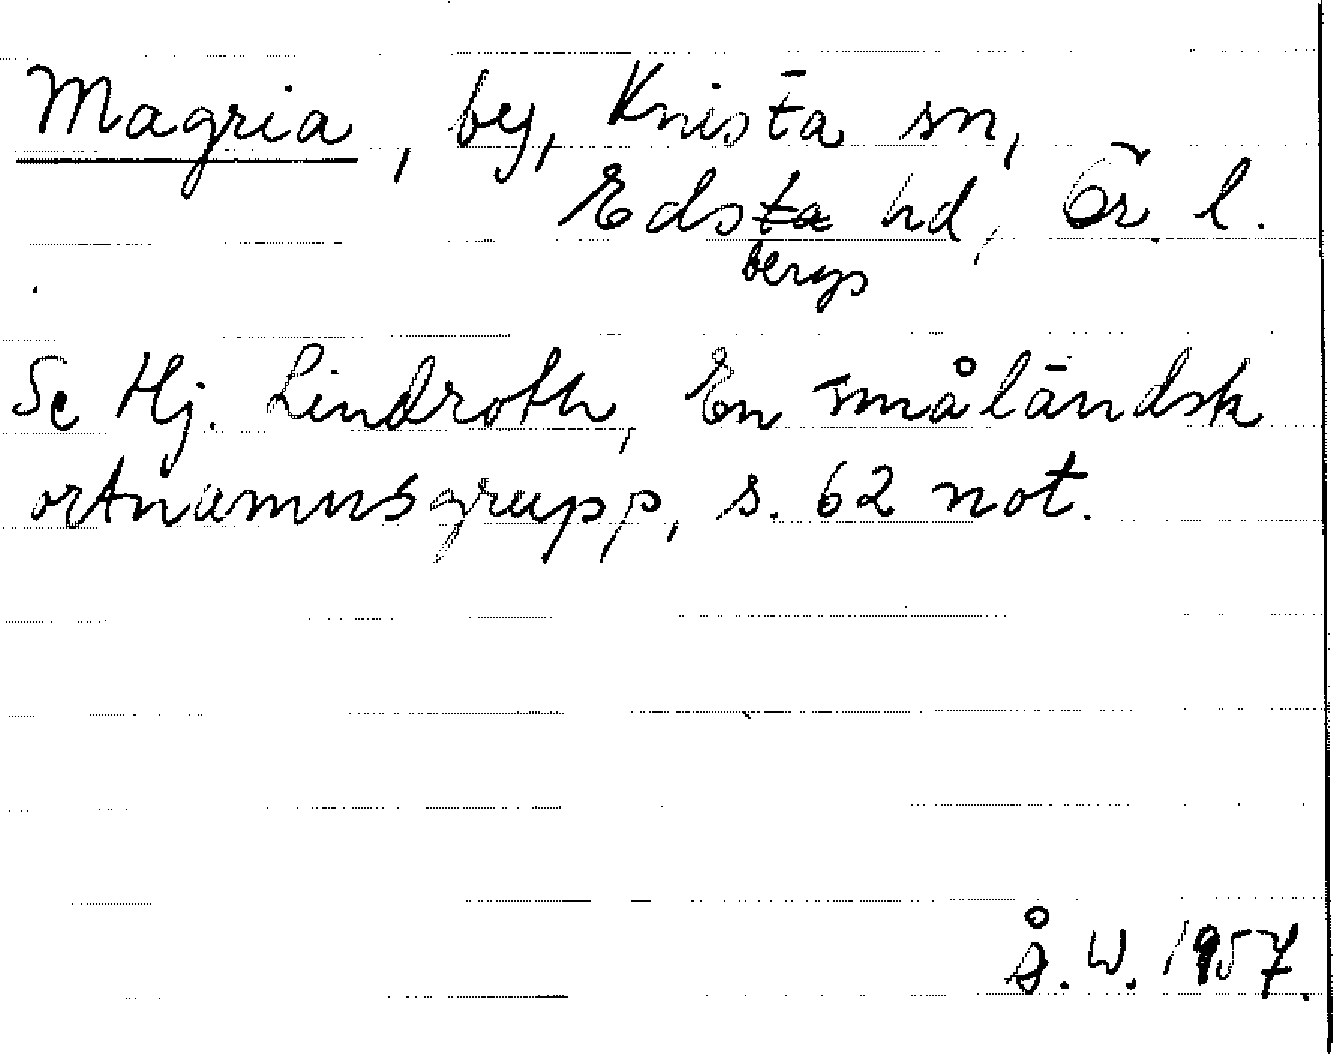 Magria, by, Knista sn,
Edsta hd, Ör. l.
bergs
Se Hj. Lindroth, En småländsk
ortnamnsgrupp, s. 62 not.
Å. W. 1957.